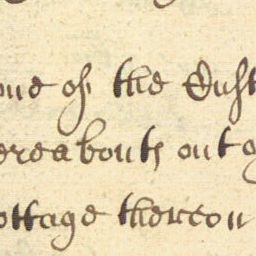 one of the Cust
ereabouts out o
ottage thereon